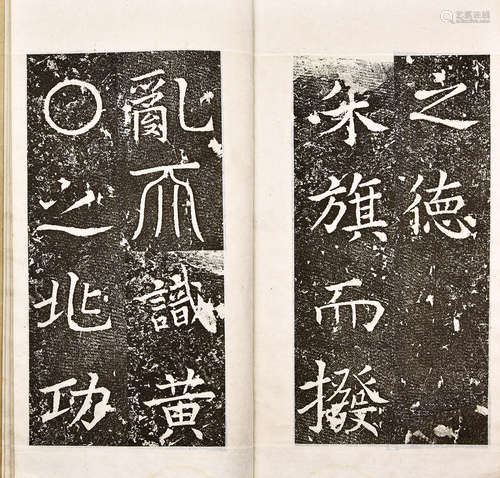 之德
朱旗而撥
亂𠀑識黃
〇之兆功